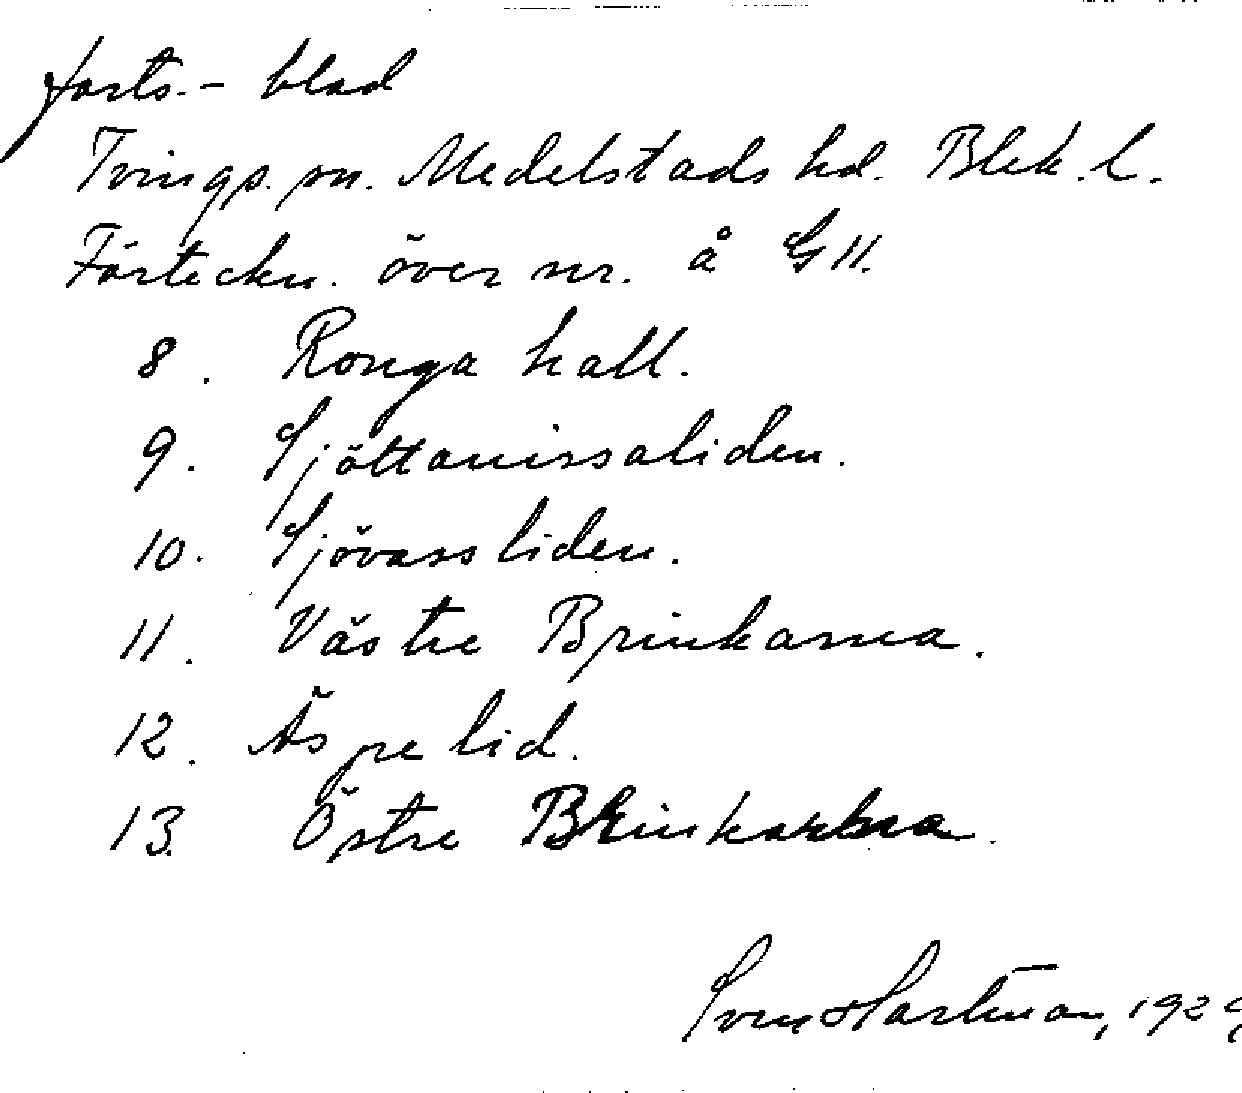 forts. - blad
Tvings. sn. Medelstads hd. Blek. l.
Förteckn. över nr. å G 11.
8. Ronga hall.
9. Sjöttanissaliden.
10. Sjövassliden.
11. Västre Brinkarna.
12. Äspelid.
13. Östre Brinkarna.
Sven Hartman, 192